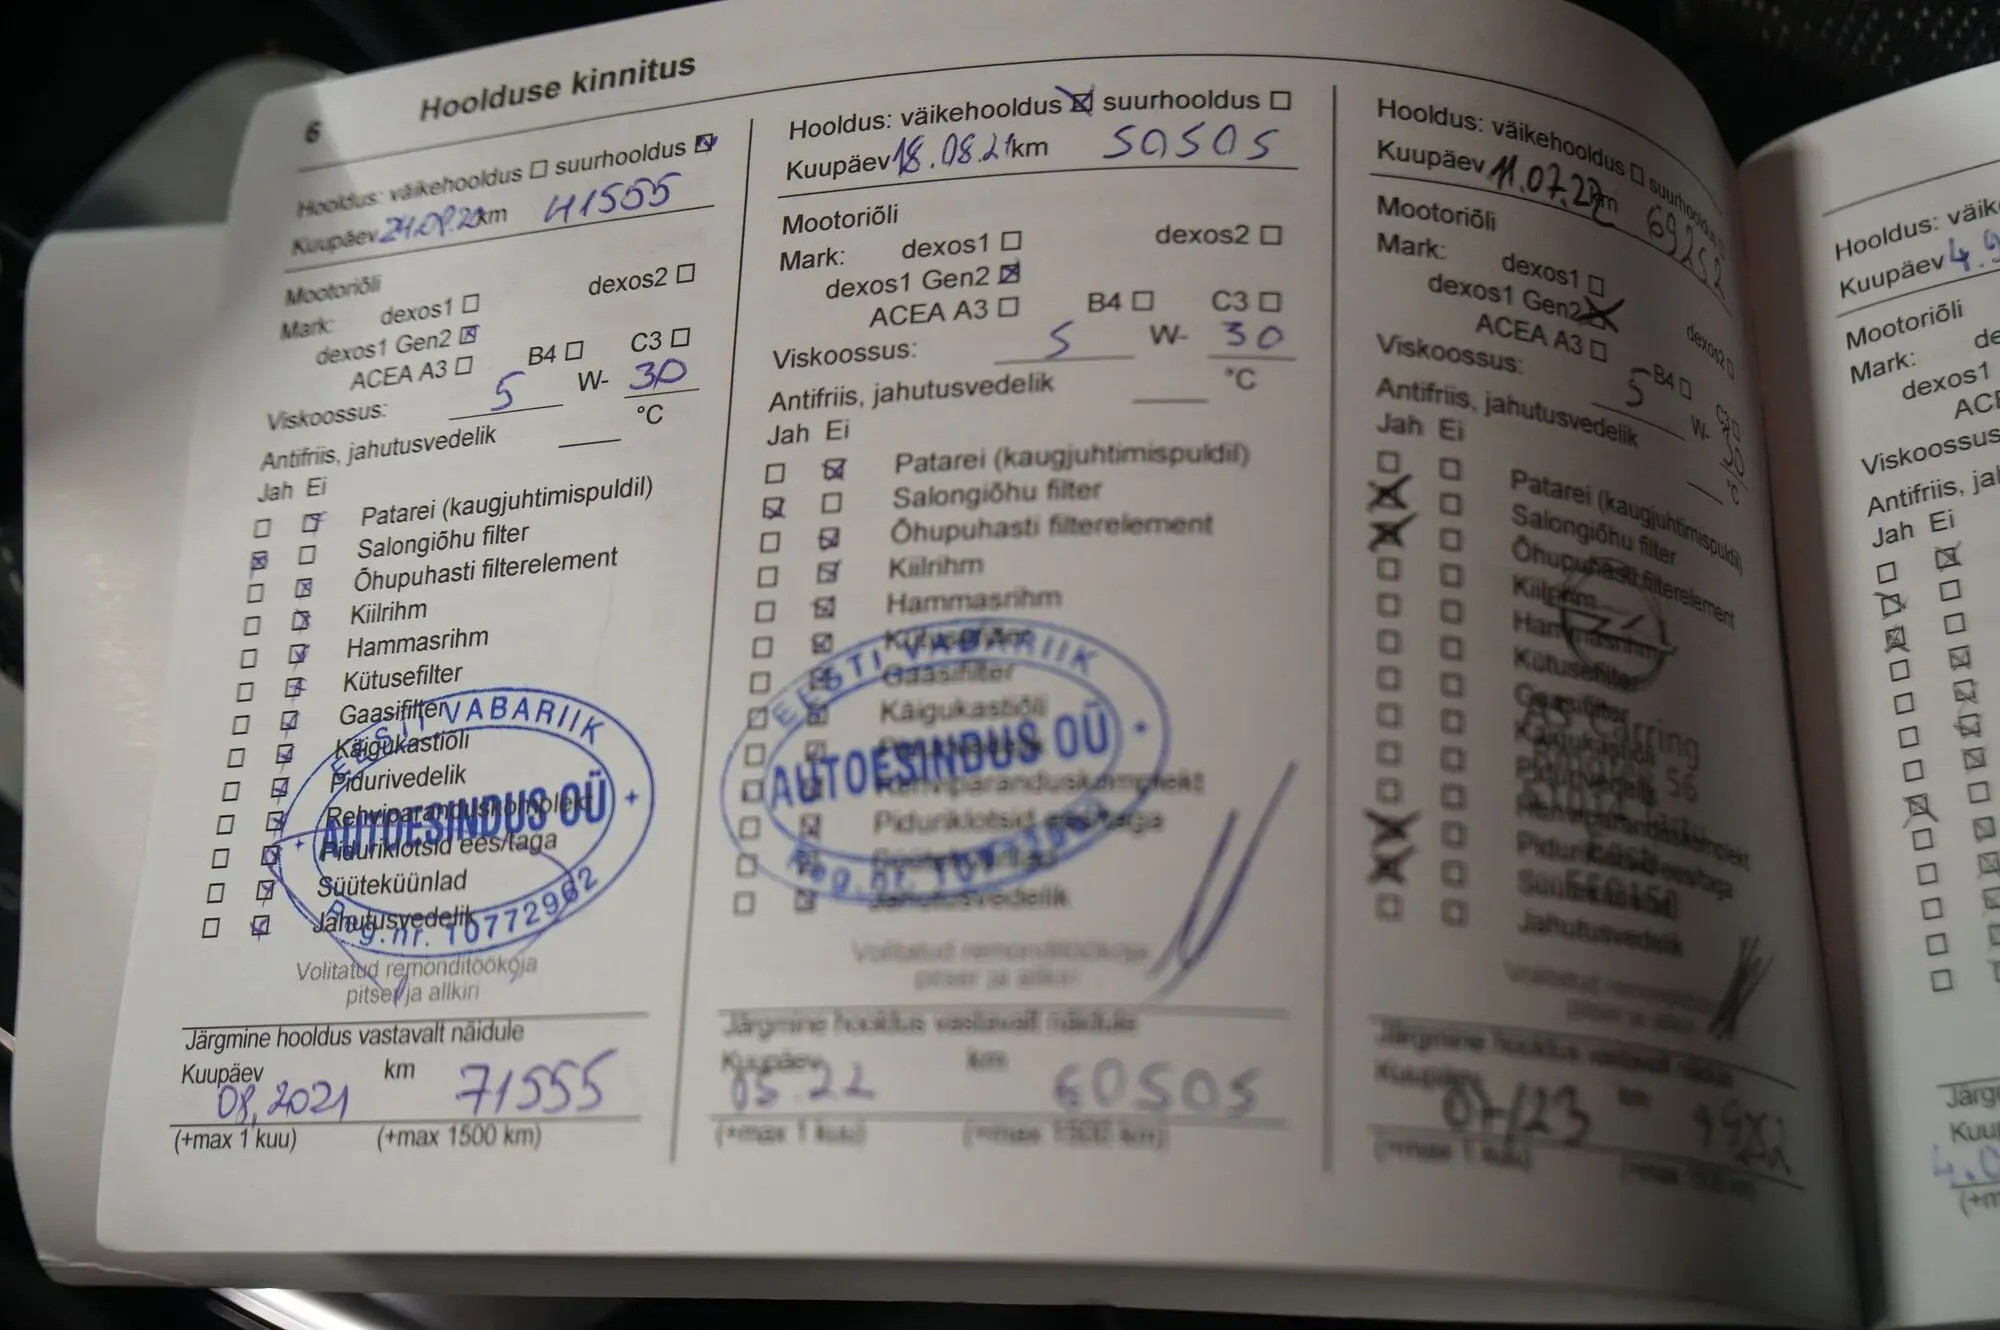 6 Hoolduse kinnitus
Hooldus: väikehooldus ☐ suurhooldus ☒
Kuupäev 24.09.20 km 41555
Mootoriõli
Mark: dexos1 ☐ dexos2 ☐
dexos1 Gen2 ☒
ACEA A3 ☐ B4 ☐ C3 ☐
Viskoossus: 5 W- 30
Antifriis, jahutusvedelik ___ °C
Jah Ei
☐ ☒ Patarei (kaugjuhtimispuldil)
☒ ☐ Salongiõhu filter
☐ ☒ Õhupuhasti filterelement
☐ ☒ Kiilrihm
☐ ☒ Hammasrihm
☐ ☒ Kütusefilter
☐ ☒ Gaasifilter
☐ ☒ Käigukastiõli
☐ ☒ Pidurivedelik
☐ ☒ Rehviparanduskomplekt
☐ ☒ Piduriklotsid ees/taga
☐ ☒ Süüteküünlad
☐ ☒ Jahutusvedelik
EESTI VABARIIK
AUTOESINDUS OÜ
Reg.nr. 10772962
Volitatud remonditöökoja
pitser ja allkiri
Järgmine hooldus vastavalt näidule
Kuupäev 08.2021 km 71555
(+max 1 kuu) (+max 1500 km)
Hooldus: väikehooldus ☒ suurhooldus ☐
Kuupäev 18.08.21 km 50505
Mootoriõli
Mark: dexos1 ☐ dexos2 ☐
dexos1 Gen2 ☒
ACEA A3 ☐ B4 ☐ C3 ☐
Viskoossus: 5 W- 30
Antifriis, jahutusvedelik ___ °C
Jah Ei
☐ ☒ Patarei (kaugjuhtimispuldil)
☒ ☐ Salongiõhu filter
☐ ☒ Õhupuhasti filterelement
☐ ☒ Kiilrihm
☐ ☒ Hammasrihm
☐ ☒ Kütusefilter
☐ ☒ Gaasifilter
☐ ☒ Käigukastiõli
☐ ☒ Pidurivedelik
☐ ☒ Rehviparanduskomplekt
☐ ☒ Piduriklotsid ees/taga
☐ ☒ Süüteküünlad
☐ ☒ Jahutusvedelik
EESTI VABARIIK
AUTOESINDUS OÜ
Reg.nr.
Volitatud remonditöökoja
pitser ja allkiri
Järgmine hooldus vastavalt näidule
Kuupäev 05.22 km 60505
(+max 1 kuu) (+max 1500 km)
Hooldus: väikehooldus ☐ suurhooldus
Kuupäev 11.07.22 km 69252
Mootoriõli
Mark: dexos1 ☐ dexos2 ☐
dexos1 Gen2 ☒
ACEA A3 ☐ B4 ☐ C3 ☐
Viskoossus: 5 W- 30
Antifriis, jahutusvedelik ___ °C
Jah Ei
☐ ☐ Patarei (kaugjuhtimispuldil)
☒ ☐ Salongiõhu filter
☒ ☐ Õhupuhasti filterelement
☐ ☐ Kiilrihm
☐ ☐ Hammasrihm
☐ ☐ Kütusefilter
☐ ☐ Gaasifilter
☐ ☐ Käigukastiõli
☐ ☐ Pidurivedelik
☐ ☐ Rehviparanduskomplekt
☒ ☐ Piduriklotsid ees/taga
☒ ☐ Süüteküünlad
☐ ☐ Jahutusvedelik
Carring
56
Volitatud remonditöökoja
pitser ja allkiri
Järgmine hooldus vastavalt näidule
Kuupäev 07/23 km 99252
(+max 1 kuu) (+max 1500 km)
Hooldus: väik
Kuupäev 4.9
Mootoriõli
Mark: de
dexos1
ACE
Viskoossus
Antifriis, ja
Jah Ei
Järg
Kuu
4.0
(+m